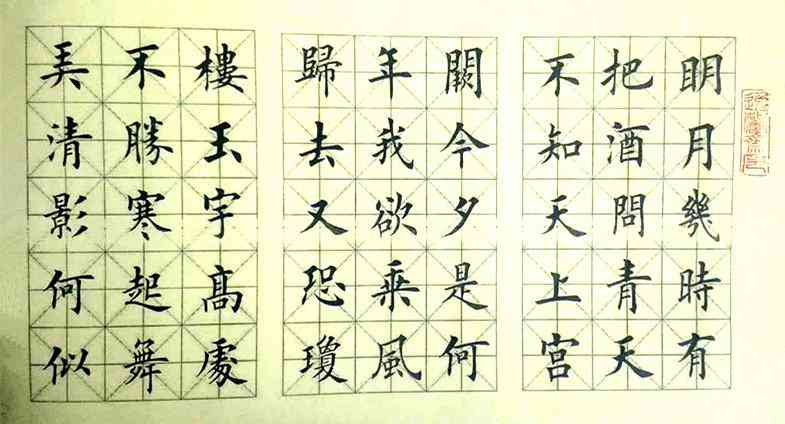 明月幾時有
把酒問青天
不知天上宮
闕今夕是何
年我欲乗風
歸去又恐瓊
樓玉宇高處
不勝寒起舞
弄清影何似